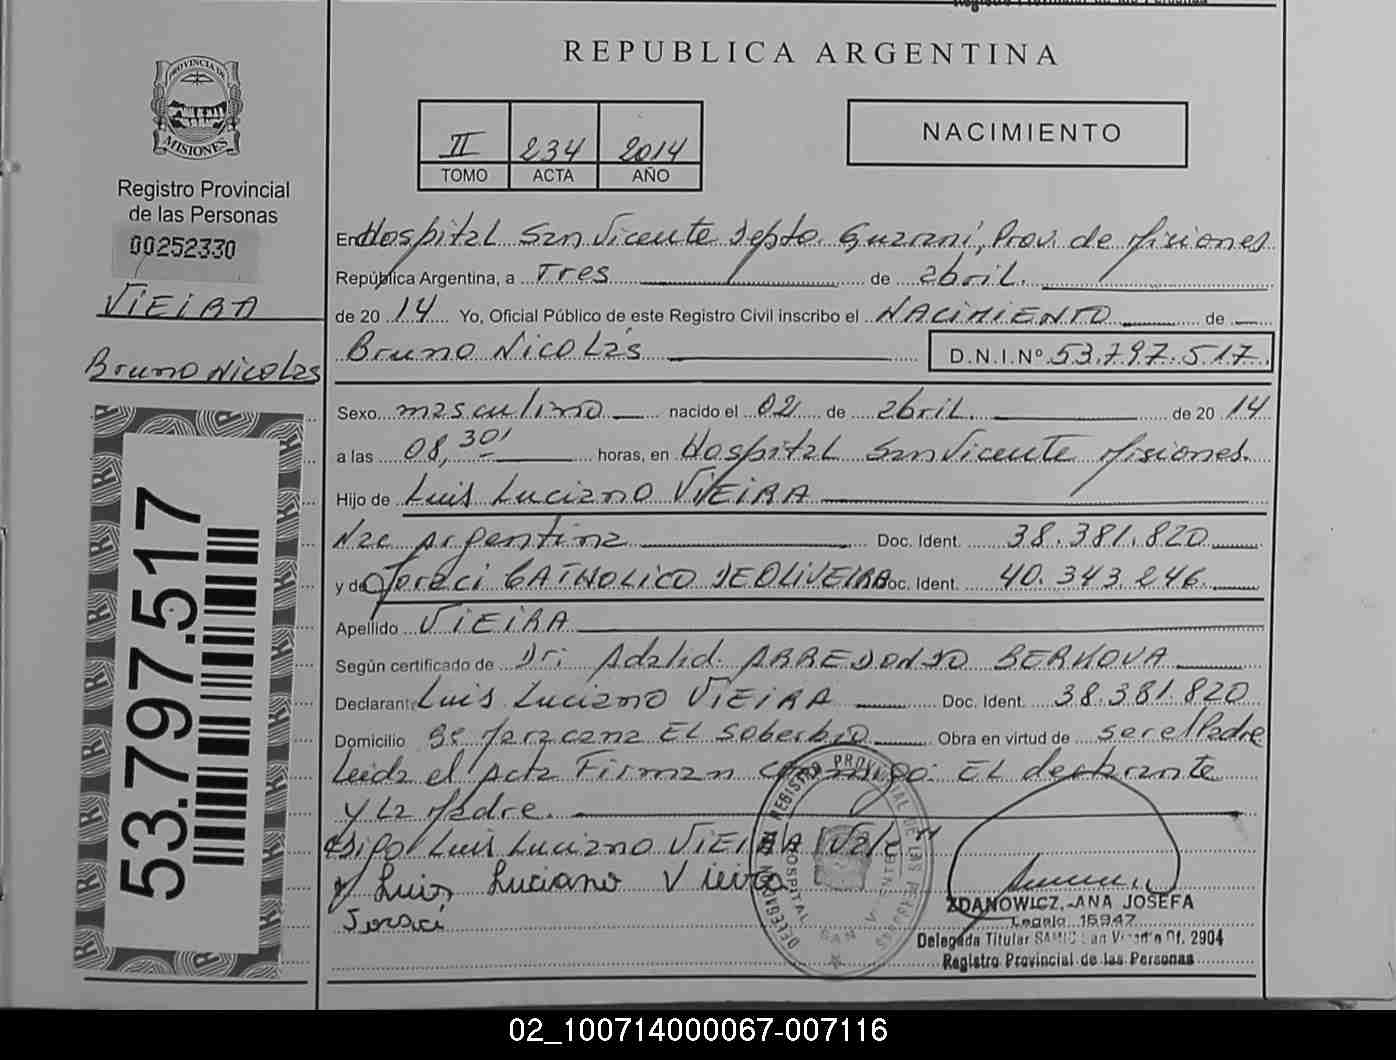 Registro Provincial de las Personas
REPUBLICA ARGENTINA
PROVINCIA DE
MISIONES
Registro Provincial
de las Personas
00252330
VIEIRA
Bruno Nicolás
53.797.517
II 234 2014
TOMO ACTA AÑO
NACIMIENTO
En Hospital San Vicente Depto. Guaraní, Prov. de Misiones
República Argentina, a Tres de abril.
de 2014 Yo, Oficial Público de este Registro Civil inscribo el NACIMIENTO de
Bruno Nicolás D.N.I.Nº 53.797.517.
Sexo masculino nacido el 02 de abril. de 2014
a las 08,30' horas, en Hospital San Vicente Misiones.
Hijo de Luis Luciano VIEIRA
Nac Argentina Doc. Ident. 38.381.820
y de Joraci CATHOLICO DEOLIVEIRA Doc. Ident. 40.343.246
Apellido VIEIRA
Según certificado de Dr. Adalid. ARREDONDO BERNOVA
Declarante Luis Luciano VIEIRA Doc. Ident. 38.381.820
Domicilio Bº Maracana EL Soberbio Obra en virtud de ser el Padre
Leída el Acta Firman conmigo: EL declarante
y La Madre.
digo Luis Luciano VIEIRA Vale"
Luis Luciano Vieira
Joraci
REGISTRO PROVINCIAL DE LAS PERSONAS
HOSPITAL SAN VICENTE
ZDANOWICZ, ANA JOSEFA
Legajo 15947
Delegada Titular SAMIC San Vicente Of. 2904
Registro Provincial de las Personas
02_100714000067-007116